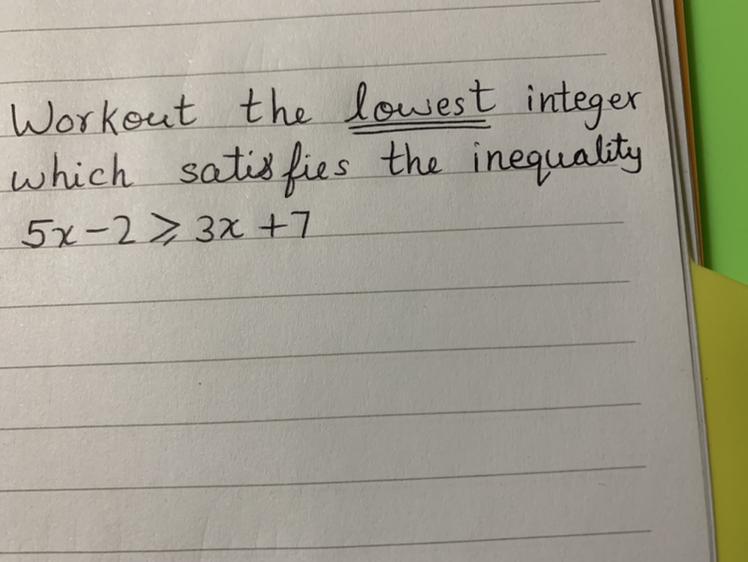 Workout the lowest integer
which satisfies the inequality
5x-2 ⩾ 3x +7